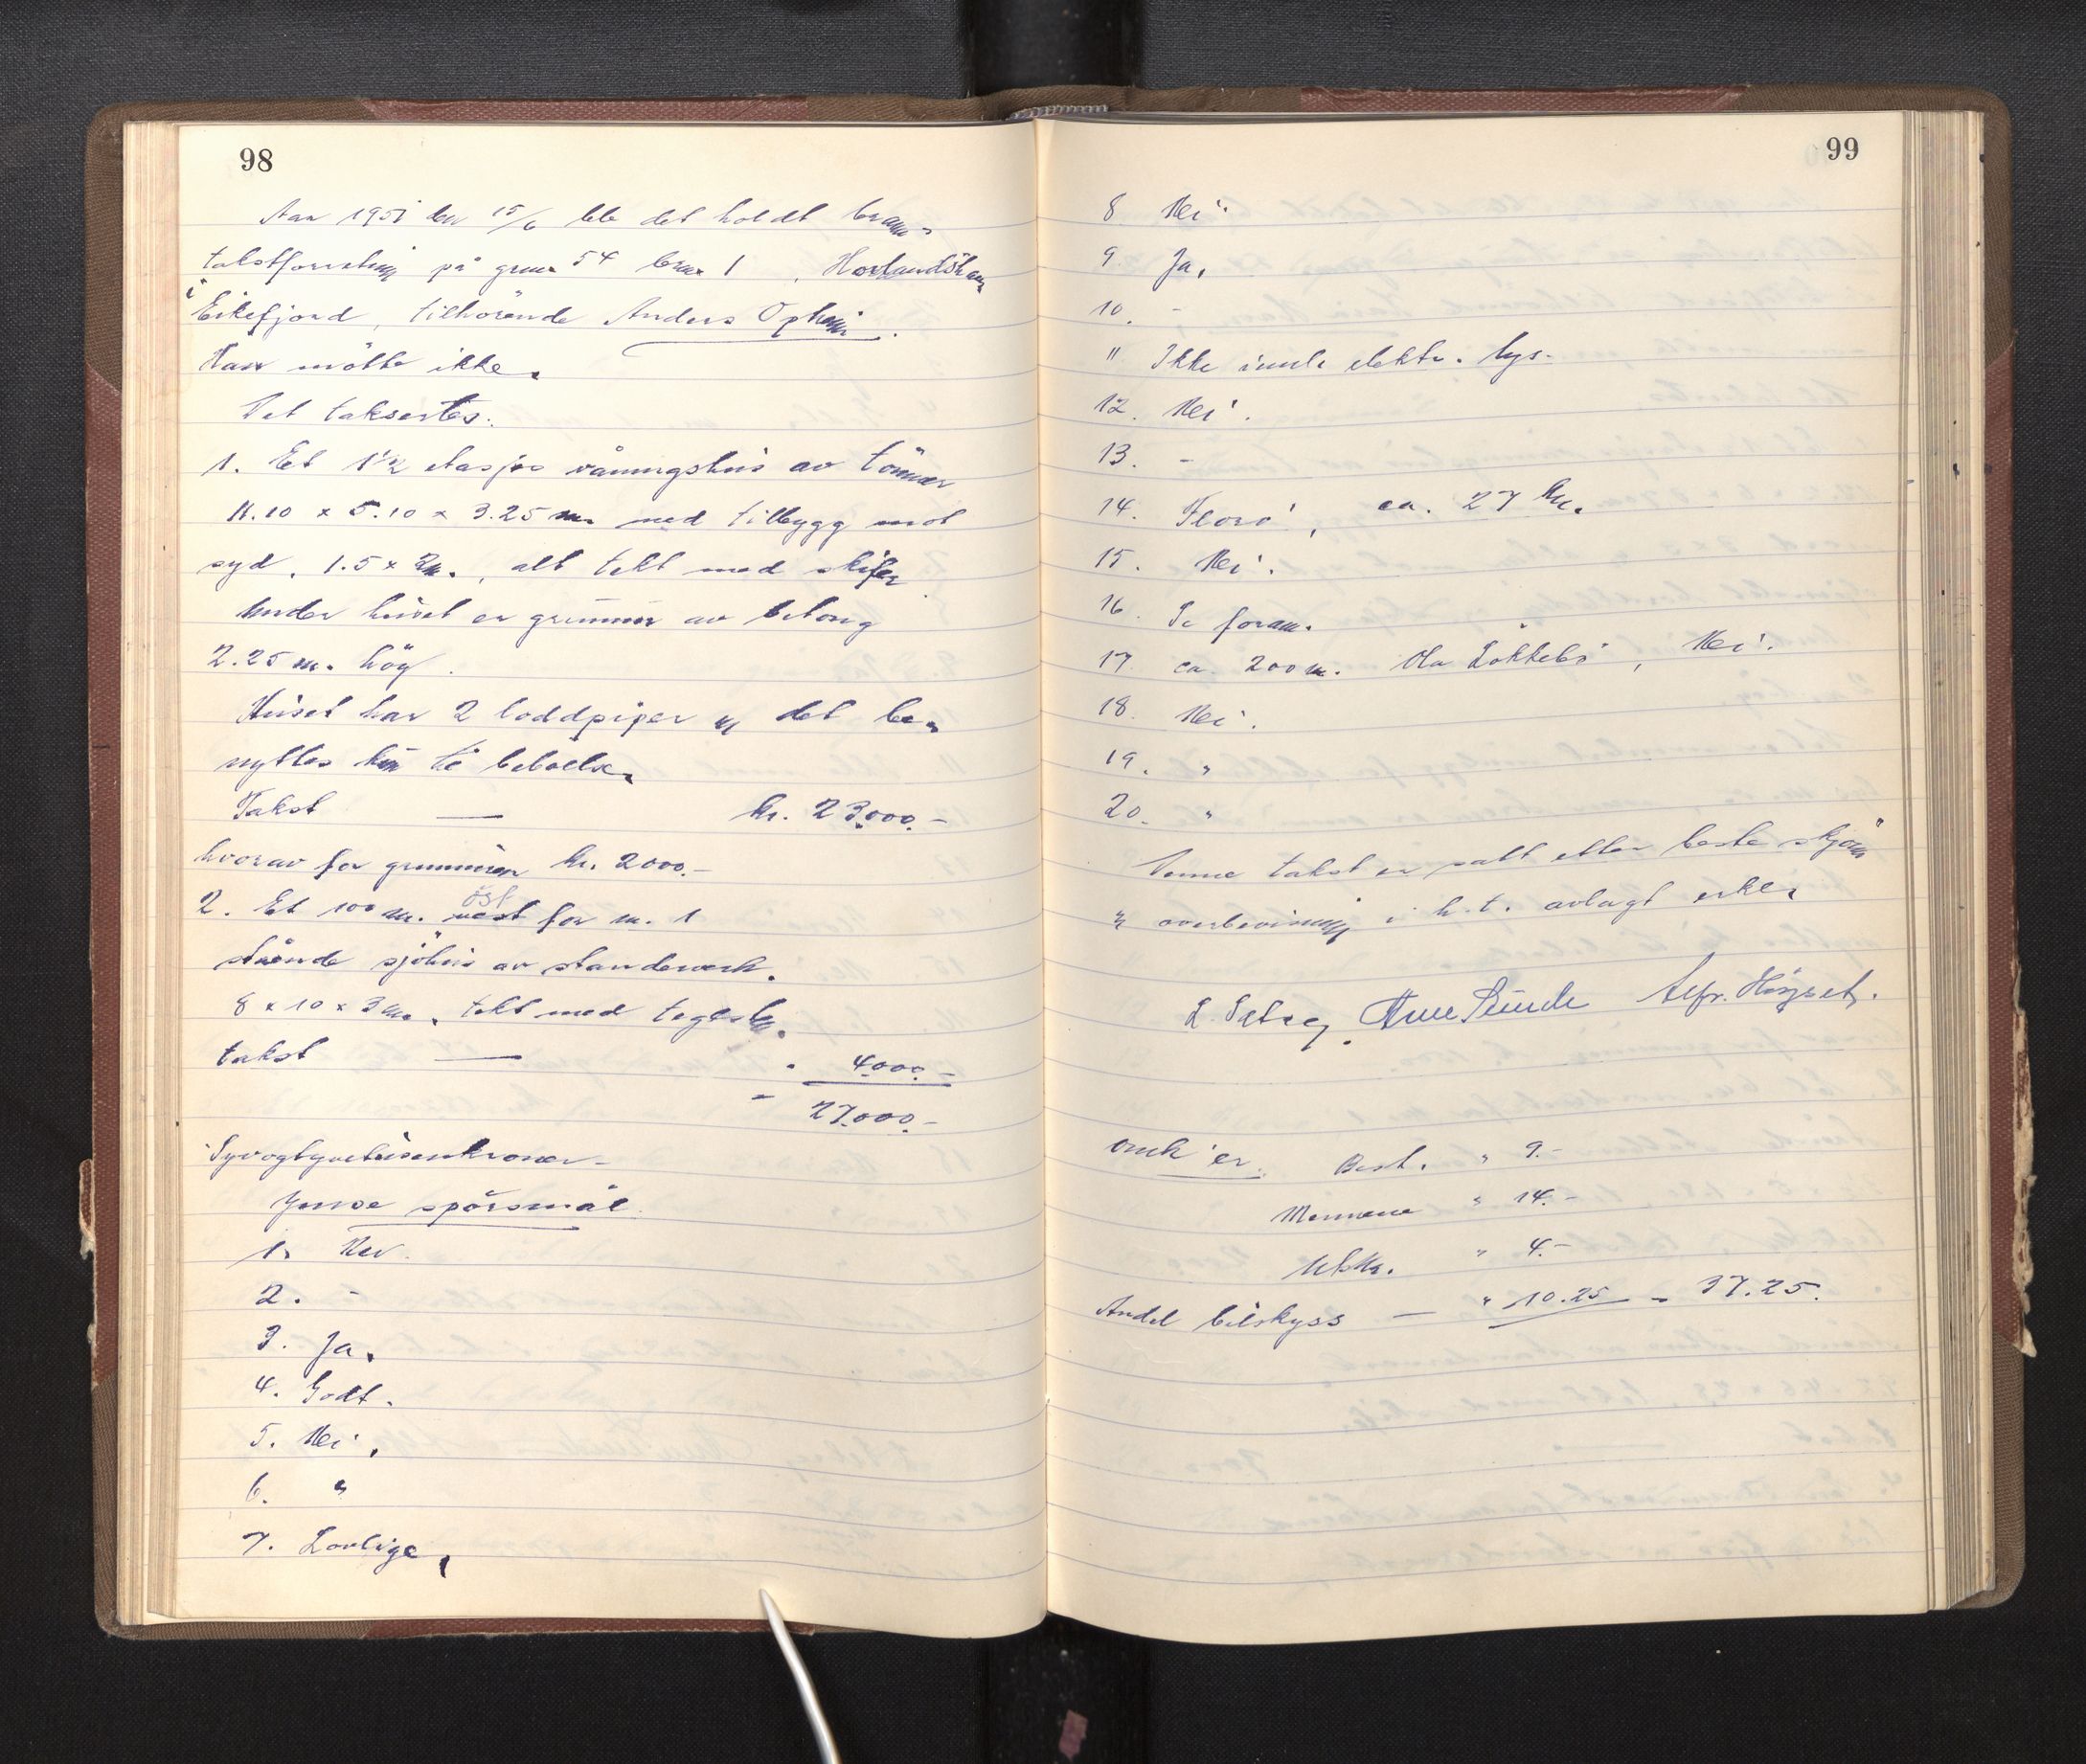 98
Aar 1951 den 15/6 ble det holdt brann-
takstforretning på gnr 54 bnr 1, Hovlandshavn
i Eikefjord, tilhörende Anders Opheim.
Han mötte ikke.
Det taksertes.
1. Et 1 1/2 etasjes våningshus av tömmer
11.10 x 5.10 x 3.25 m. med tilbygg mot
syd, 1.5 x 2 m., alt tekt med skifer.
Under huset er grunnmur av betong
2.25 m. höy.
Huset har 2 loddpiper og det be-
nyttes kun til beboelse.
Takst — kr. 23.000.-
hvorav for grunnmuren kr. 2000.-
2. Et 100 m. öst for m. 1
stående sjöhus av standerverk.
8 x 10 x 3 m., tekt med teglst.
takst — " 4.000.-
" 27.000.-
Syvogtyvetusenkroner-
Jense spörsmål
1. Nei.
2. -
3. Ja.
4. Godt.
5. Nei.
6. "
7. Lovlige.
99
8 Nei.
9 Ja.
10. -
11 Ikke innl. elektr. lys.
12. Nei.
13. -
14. Florö, ca. 27 km.
15. Nei.
16. Se foran.
17. ca. 200 m. Ola Lökkebö, Nei.
18. Nei.
19. "
20. "
Denne takst er satt etter beste skjönn
og overbevisning i h.t. avlagt erkl.
L. Sæbø, Arne Sunde Alfr. Höyset.
omk'er. Best. " 9.-
Mennene " 14.-
Utskr. " 4.-
Andel bilskyss — " 10.25 - 37.25.